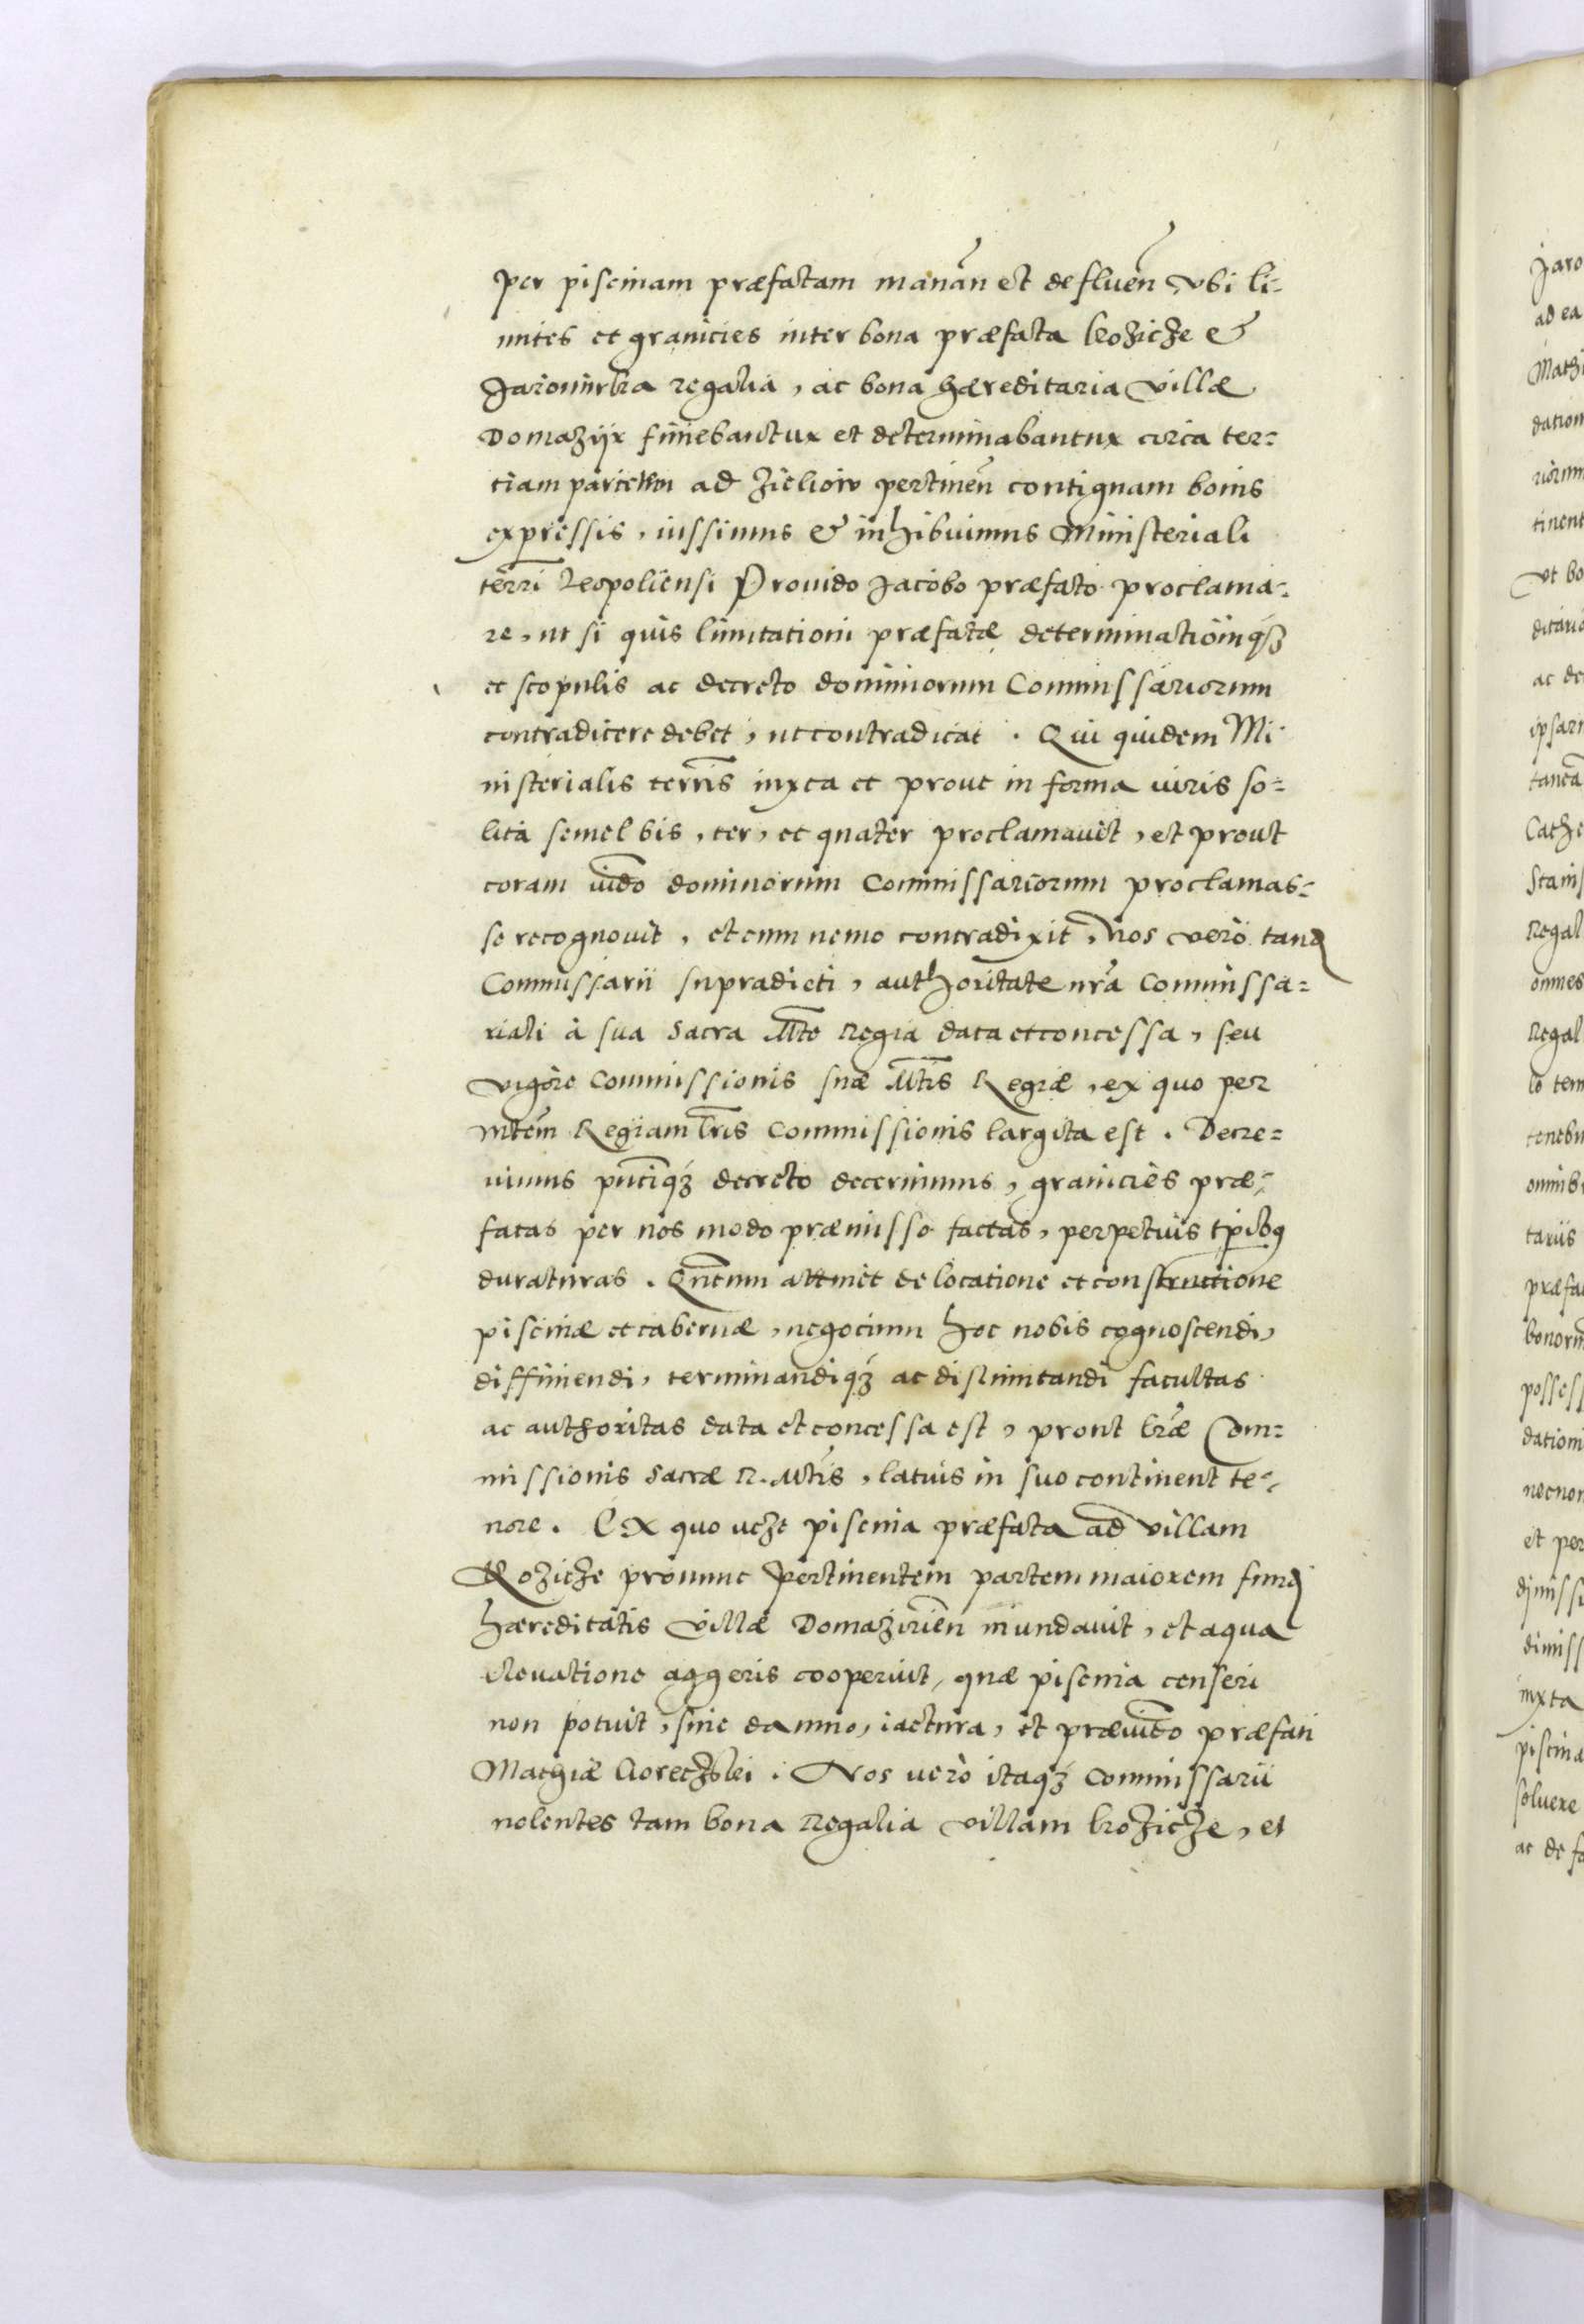 per piscinam præfactam manan̄ et defluen̄ vbi li-
mites et granicies inter bona præfata kozicze &
Jarominka regalia, ac bona hæreditaria villæ
Domazijr finiebantur et determinabantur circa ter-
ciam partem ad Zieliow pertinen̄ contiguam bonis
expressis, iussimus & inhibuimus Ministeriali
terrī Leopoliensi Prouido Jacobo præfato proclama-
re, ut si quis limitationi præfatæ determinationiq́ꝫ
et scopulis ac decreto dominorum Commissariorum
contradicere debet, ut contradicat. Qui quidem Mi
nisterialis terrīs iuxta et prout in forma iuris so-
lita semel bis, ter, et quater proclamauit, et prout
coram iūdo dominorum Commissariorum proclamas-
se recognouit, et cum nemo contradixit, nos verò tanq̃
Commissarii supradicti, authoritate nr̃a Commissa-
riali à sua Sacra Mt̄e Regia data et concessa, seu
vigore Commissionis suæ Mt̄is Regiæ, ex quo per
mtēm Regiam lr̄is Commissionis largita est. Decre-
uimus pn̄tiq́ꝫ decreto decernimus, granicies præ-
fatas per nos modo præmisso factas, perpetuis tp̄ibꝰ
duraturas. Qn̄tum attinet de locatione et constructione
piscinæ et tabernæ, negocium hoc nobis cognoscendi,
diffiniendi, terminandiq́ꝫ ac dislimitandi facultas
ac authoritas data et concessa est, prout lr̃æ Com-
missionis Sacræ R. Mt̄is, latius in suo continent te-
nore. Ex quo ueze piscina præfata ad villam
Kozicze pronunc pertinentem partem maiorem fundi
hæreditatis villæ Domazirien̄ inundauit, et aqua
eleuatione aggeris cooperiut, quæ piscina censeri
non potuit, sine damno, iactura, et præiūdo præfati
Mathiæ Goreczskei. Nos uerò itaq́ꝫ Commissarii
nolentes tam bona Regalia villam kozicze, et